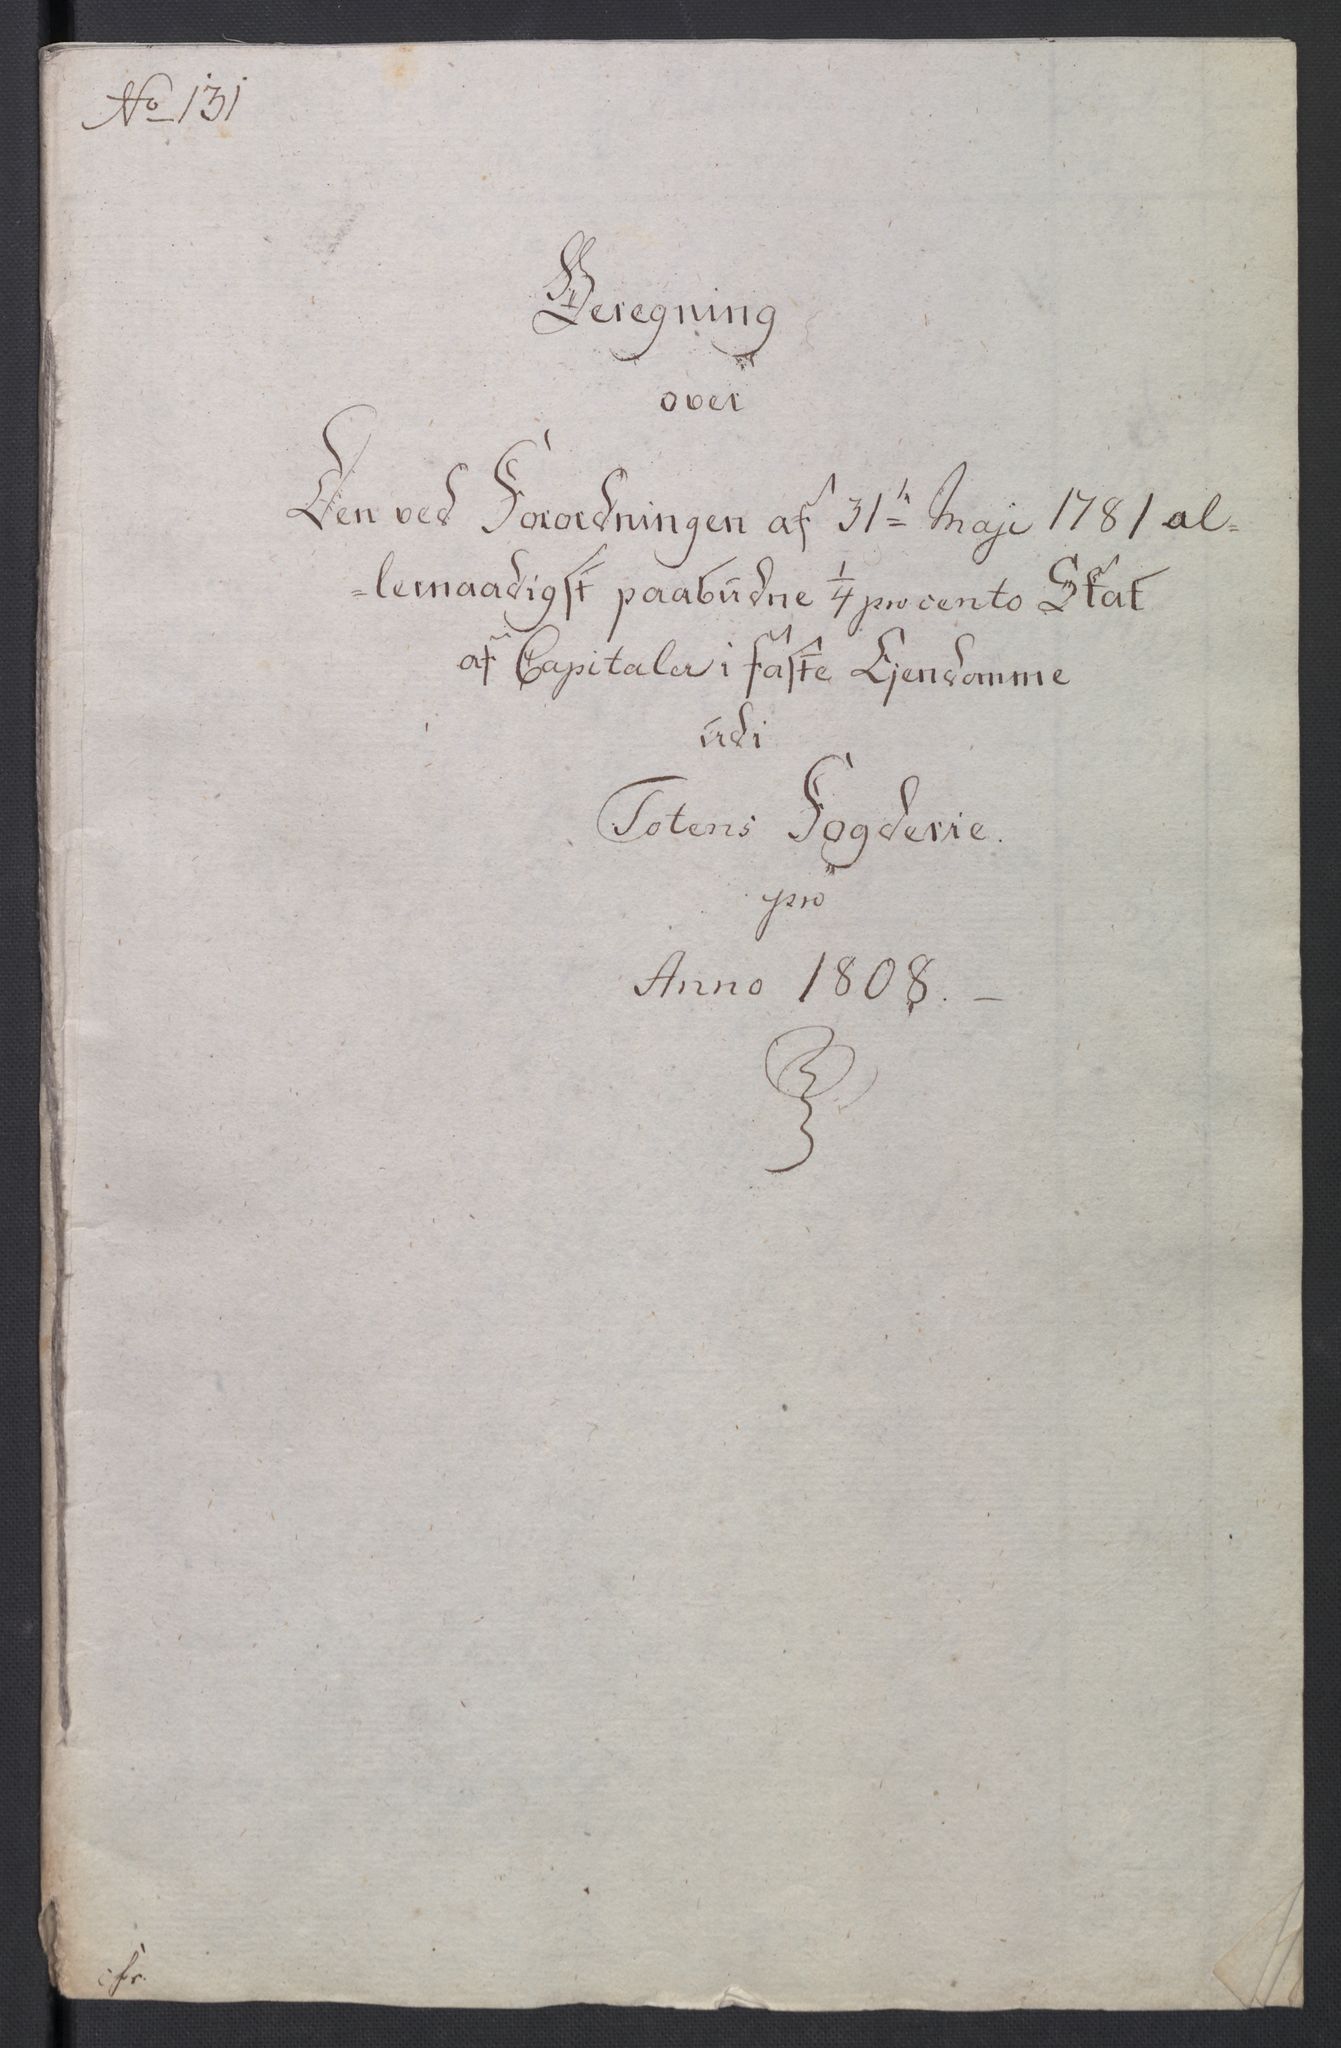 No 131
Beregning
over
Den ved Forordningen af 31te Maji 1781 al=
=lernaadigst paabudne 1/4 procento Skat
af Capitaler i faste Ejendomme
udi
Totens Fogderie.
pro
Anno 1808. –
cfr.